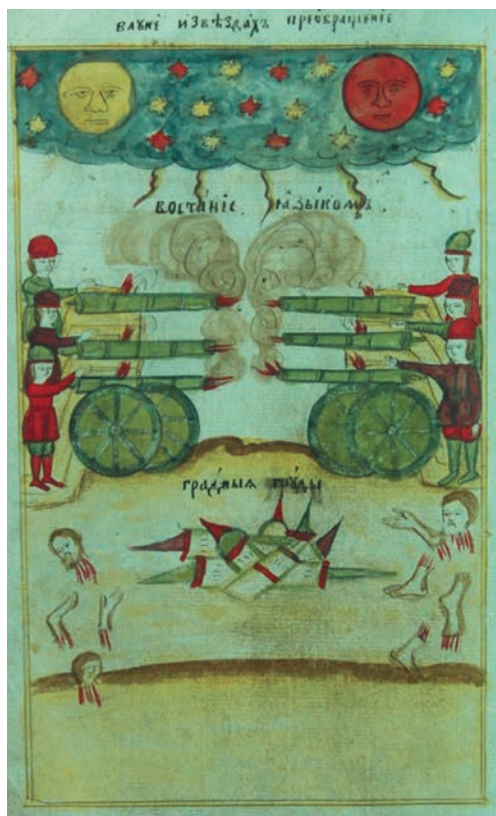 влуне извѣздахъ преобращенїе
востанїе ꙗзыкомъ
градныя